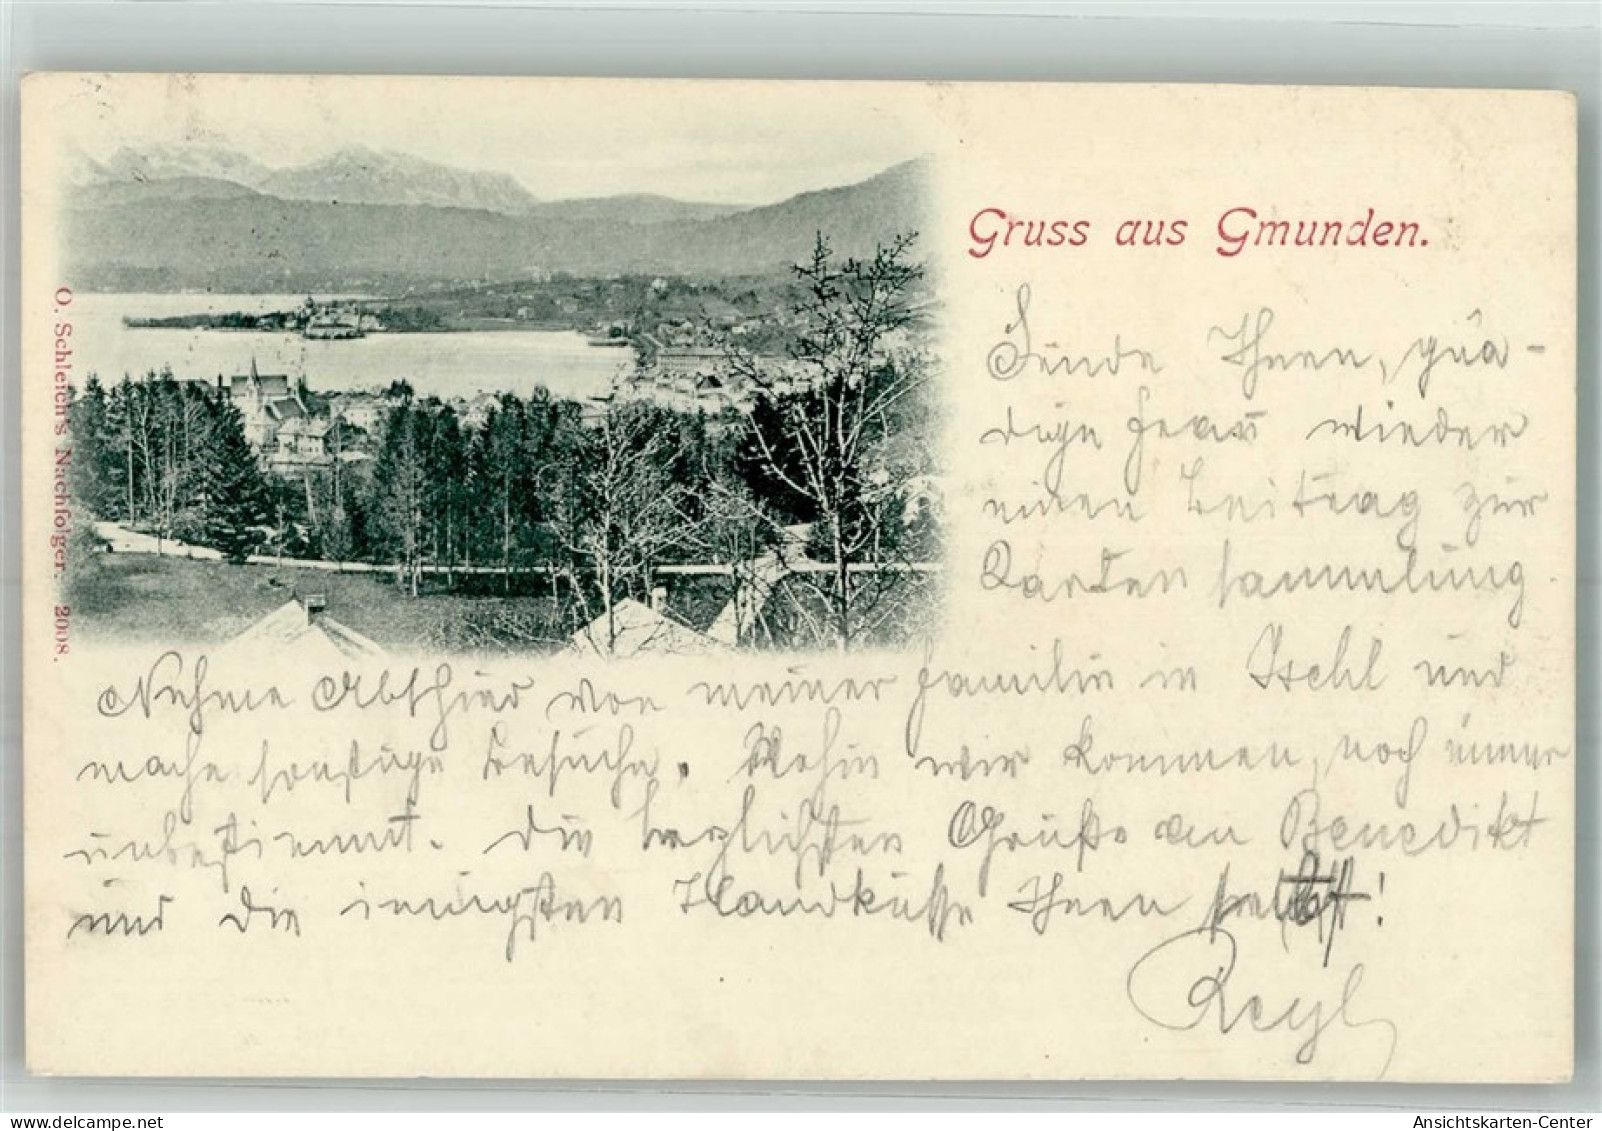 Gruss aus Gmunden.
O. Schleich's Nachfolger. 2008.
Sende Ihnen, gnä-
dige Frau wieder
einen Beitrag zur
Kartensammlung
Nehme Abschied von meiner Familie in Ischl und
mache sonstige Besuche. Wohin wir kommen, noch immer
unbestimmt. Die herzlichsten Grüße an Benedikt
und die innigsten Handküsse Ihnen selbst!
Ansichtskarten-Center